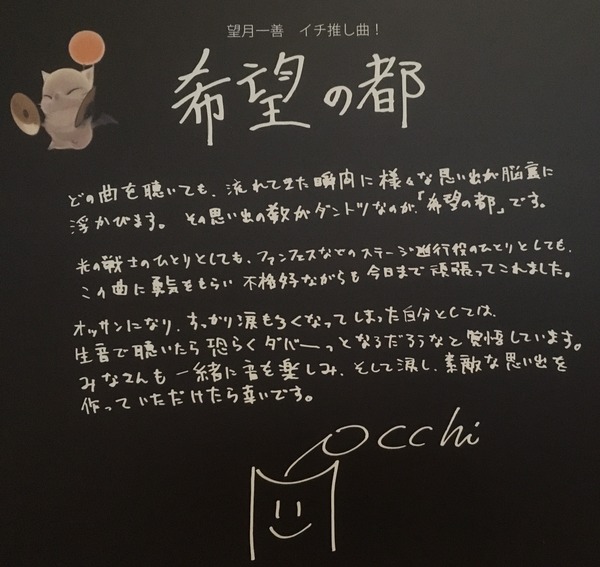 望月一善　イチ推し曲！
希望の都
どの曲を聴いても、流れてきた瞬間に様々な思い出が脳裏に
浮かびます。その思い出の数がダントツなのが、「希望の都」です。
光の戦士のひとりとしても、ファンフェスなどのステージ進行役のひとりとしても、
この曲に勇気をもらい不格好ながらも今日まで頑張ってこれました。
オッサンになり、すっかり涙もろくなってしまった自分としては、
生音で聴いたら恐らくダバーーっとなるだろうなと覚悟しています。
みなさんも一緒に音を楽しみ、そして涙し、素敵な思い出を
作っていただけたら幸いです。
Occhi